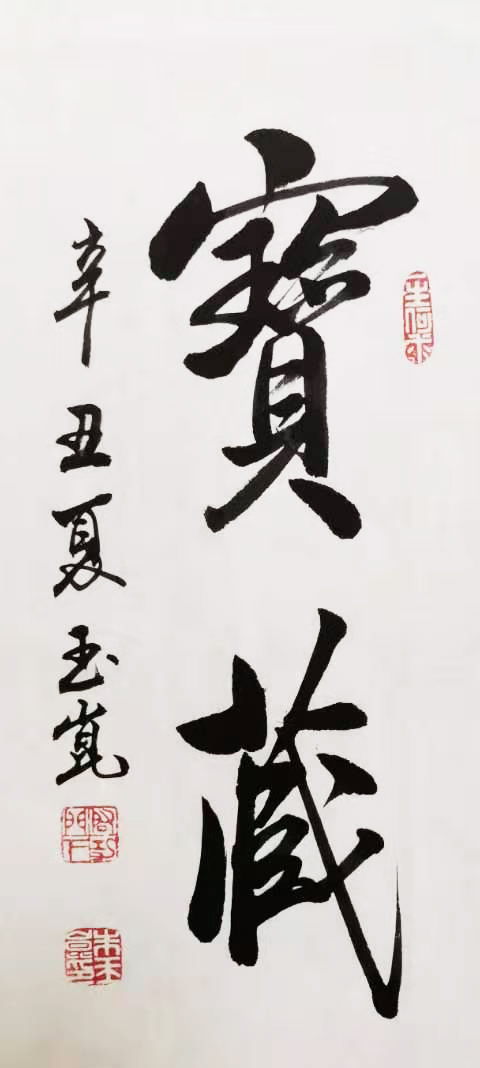 寶藏
辛丑夏玉崑